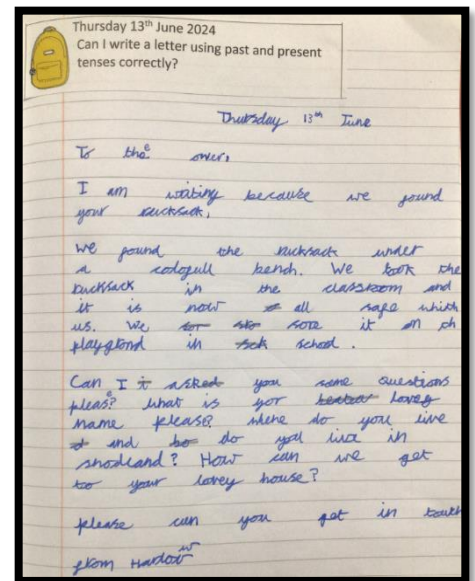 Thursday 13th June 2024
Can I write a letter using past and present
tenses correctly?
Thursday 13th June
To the ower,
I am writing because we found
your rucksack,
We found the rucksack under
a cologull bench. We took the
rucksack in the classroom and
it is now all safe whith
us. We sore it on ch
playgrond in school.
Can I ask you some questions
please? what is yor lovey
name please? where do you live
and do you live in
snodland? How can we get
to your lovey house?
please can you get in touch
from Harlow